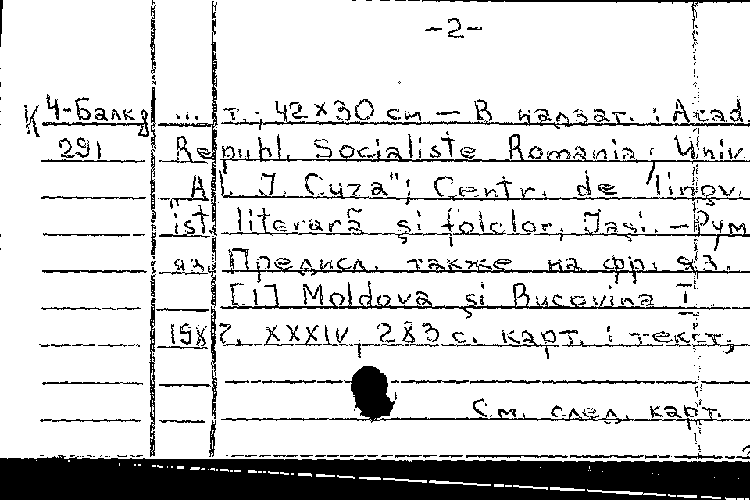 -2-
К 4-Балк8 ... т.; 42×30 см — В надзат.: Acad.
291 Republ. Socialiste Romania; Univ.
"Al. I. Cuza"; Centr. de lingv.
ist. literară şi folclor, Iaşi. — Рум
яз. Предисл. также на фр. яз.
[1] Moldova şi Bucovina I
1987. XXXIV, 283 с. карт. : текст;
См. след. карт.